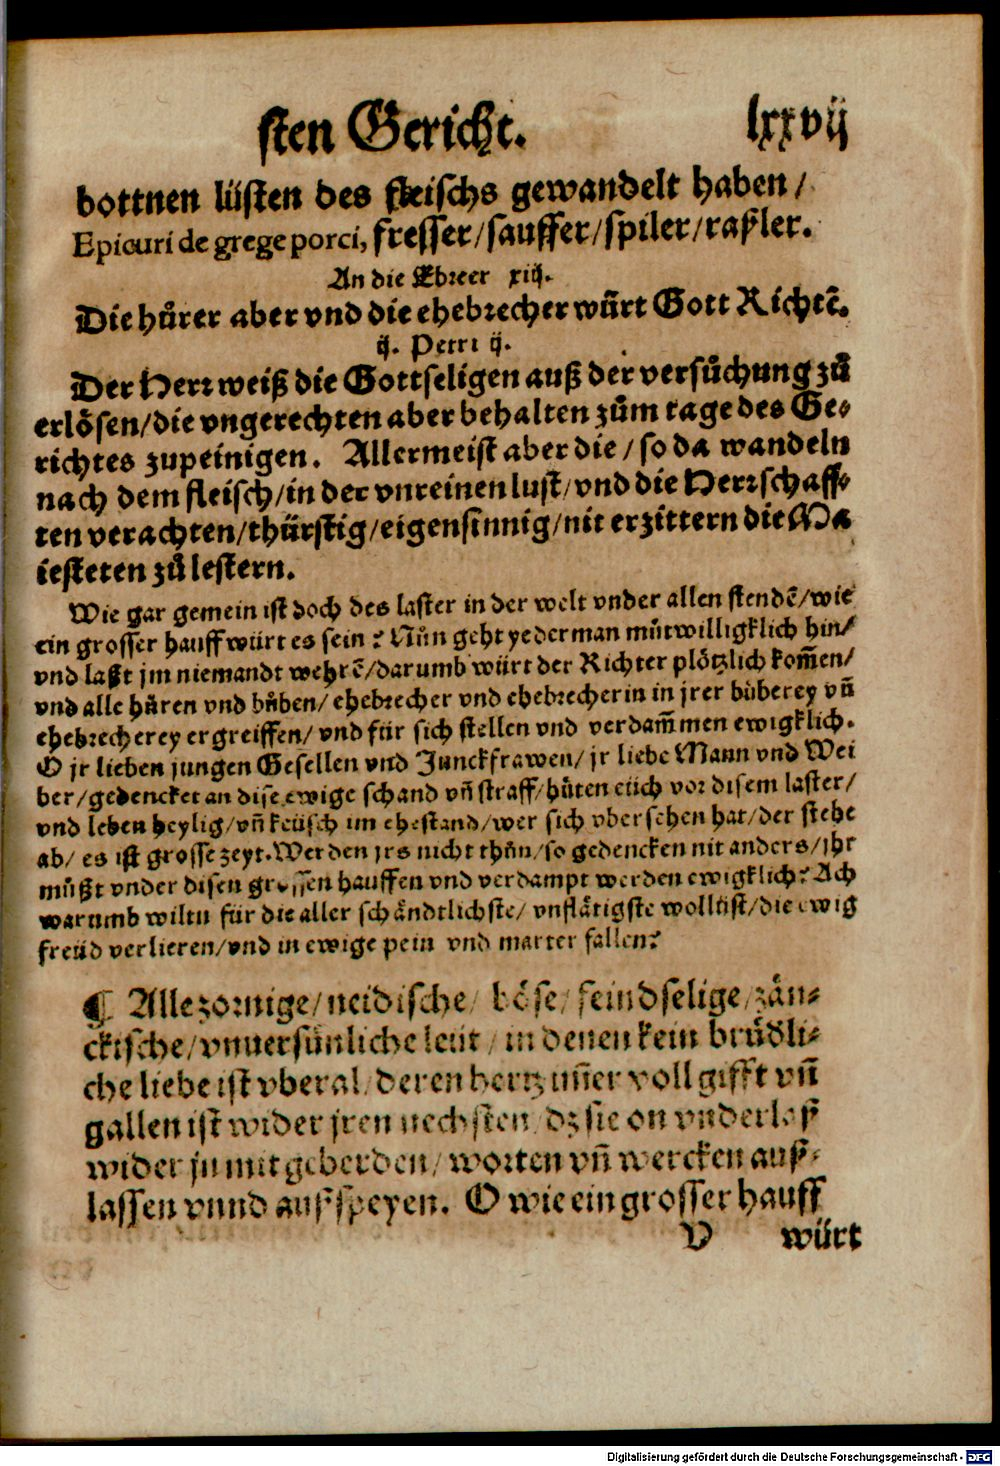 sten Gericht. lxxvij
bottnen lüsten des fleischs gewandelt haben /
Epicuri de grege porci, fresser/sauffer/spiler/raßler.
An die Ebreer xiij.
Die hůrer aber vnd die ehebrecher würt Gott Richtē.
ij. Petri ij.
Der Herr weiß die Gottseligen auß der versůchung zů
erlösen/die vngerechten aber behalten zům tage des Ge-
richtes zupeinigen. Allermeist aber die / so da wandeln
nach dem fleisch/in der vnreinen lust/vnd die Herrschaff-
ten verachten/thürstig/eigensinnig/nit erzittern die Ma
iesteten zů lestern.
Wie gar gemein ist doch des laster in der welt vnder allen stendē/wie
ein grosser hauff würt es sein? Nůn geht yederman můtwilligklich hin/
vnd laßt jm niemandt wehrē/darumb würt der Richter plötzlich kom̄en/
vnd alle hůren vnd bůben/ ehebrecher vnd ehebrecherin in jrer bůberey vn̄
ehebrecherey ergreiffen/ vnd für sich stellen vnd verdam̄men ewigklich.
O jr lieben jungen Gesellen vnd Junckfrawen/ jr liebe Mann vnd Wei
ber/gedencket an dise ewige schand vn̄ straff/hůten eüch vor disem laster/
vnd leben heylig/vn̄ keüsch im ehestand/wer sich vbersehen hat/der stehe
ab/ es ist grosse zeyt. Werden jrs nicht thůn/so gedencken nit anders/jhr
můßt vnder disen grossen hauffen vnd verdampt werden ewigklich? Ach
warumb wiltu für die aller schändtlichste/ vnflätigste wollüst/die ewig
freüd verlieren/vnd in ewige pein vnd marter fallen?
¶ Alle zornige/neidische/ böse/ feindselige/zän-
ckische/vnuersünliche leüt / in denen kein brüdli-
che liebe ist vberal/ deren hertz im̄er voll gifft vn̄
gallen ist wider jren nechsten/ dz sie on vnderlaß
wider jn mit geberden/ worten vn̄ wercken auß-
lassen vnnd außspeyen. O wie ein grosser hauff
V würt
Digitalisierung gefördert durch die Deutsche Forschungsgemeinschaft - DFG